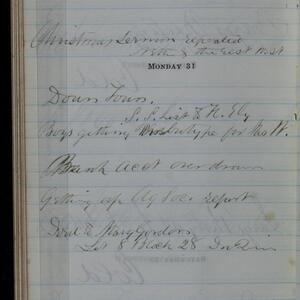 Christmas Sermon repeated
with & the rest
MONDAY 31
Down Town.
S. S. List & H. Ely
Boys getting type for
Bank acct over drawn
Getting up report
Deed to Mary Gordon
Lot 8 Block 28